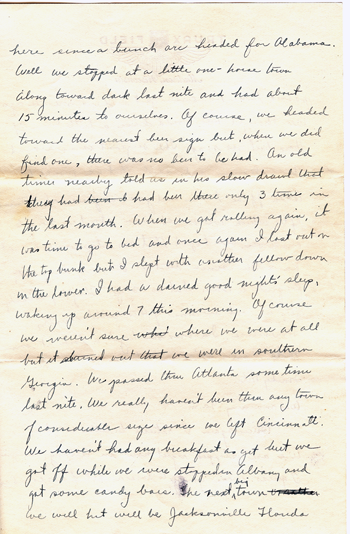 here since a bunch are headed for Alabama.
Well we stopped at a little one-horse town
along toward dark last nite and had about
15 minutes to ourselves. Of course, we headed
toward the nearest beer sign but, when we did
find one, there was no beer to be had. An old
timer nearby told us in his slow drawl that
they had had beer there only 3 times in
the last month. When we got rolling again, it
was time to go to bed and once again I lost out on
the top bunk but I slept with another fellow down
in the lower. I had a darned good night's sleep,
waking up around 7 this morning. Of course
we weren't sure where we were at all
but it turned out that we were in southern
Georgia. We passed thru Atlanta some time
last nite. We really haven't been thru any town
of considerable size since we left Cincinnati.
We haven't had any breakfast as yet but we
got off while we were stopped in Albany and
got some candy bars. The next big town
we will hit will be Jacksonville Florida